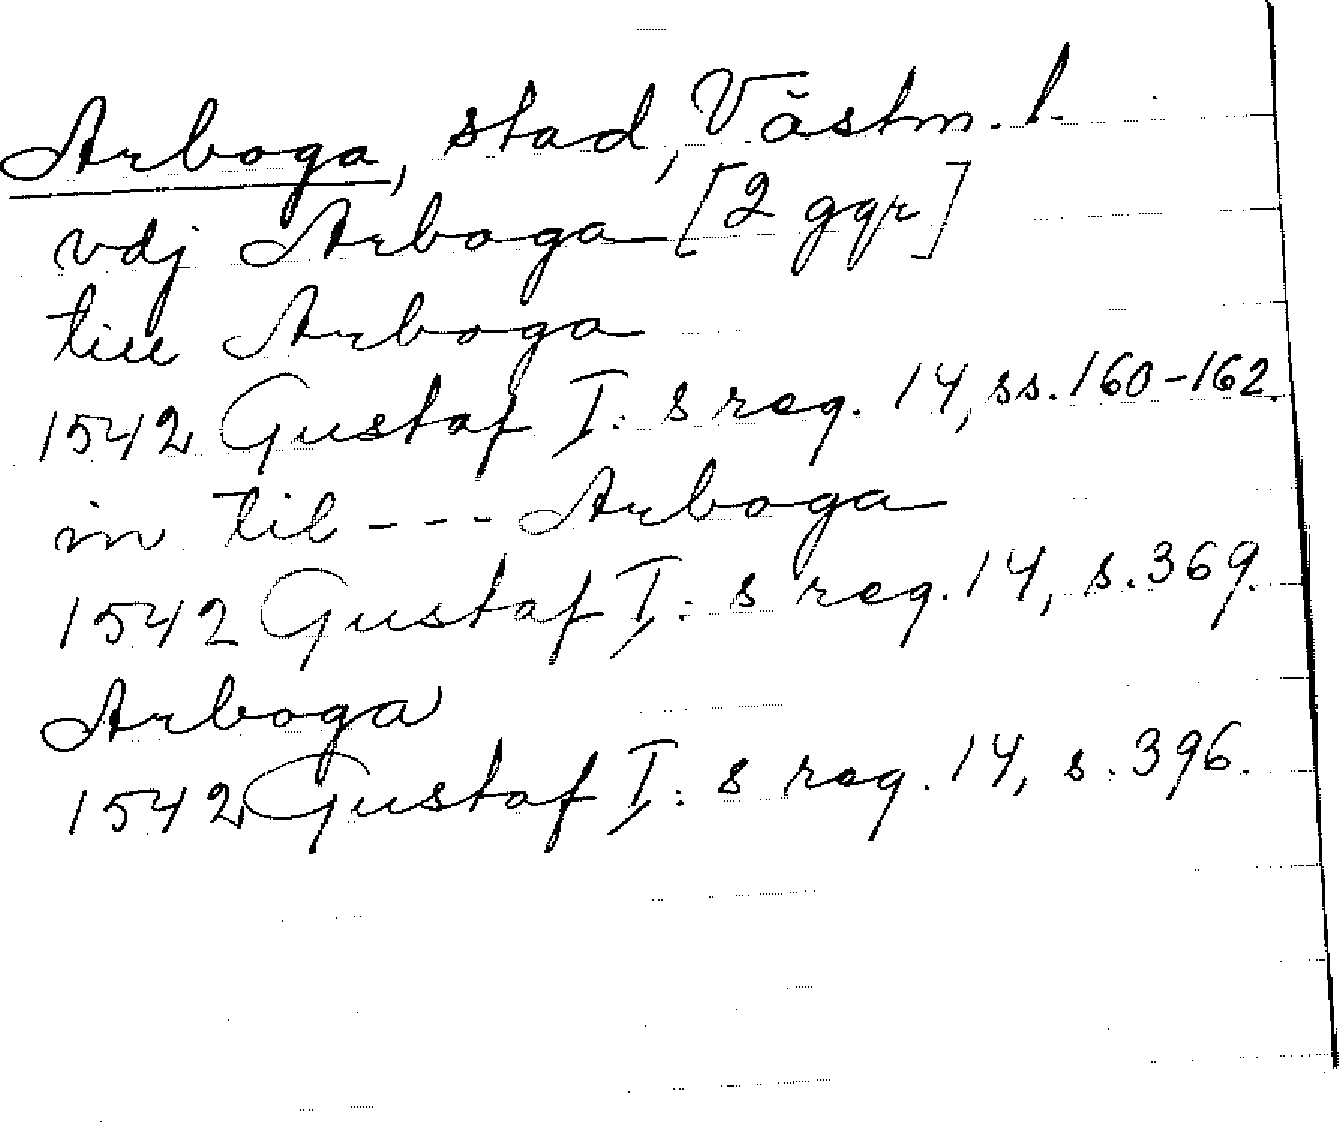 Arboga, stad, Västm. l.
vdj Arboga [2 ggr]
till Arboga
1542 Gustaf I: s reg. 14, ss. 160-162.
in til --- Arboga
1542 Gustaf I: s reg. 14, s. 369.
Arboga
1542 Gustaf I: s reg. 14, s. 396.